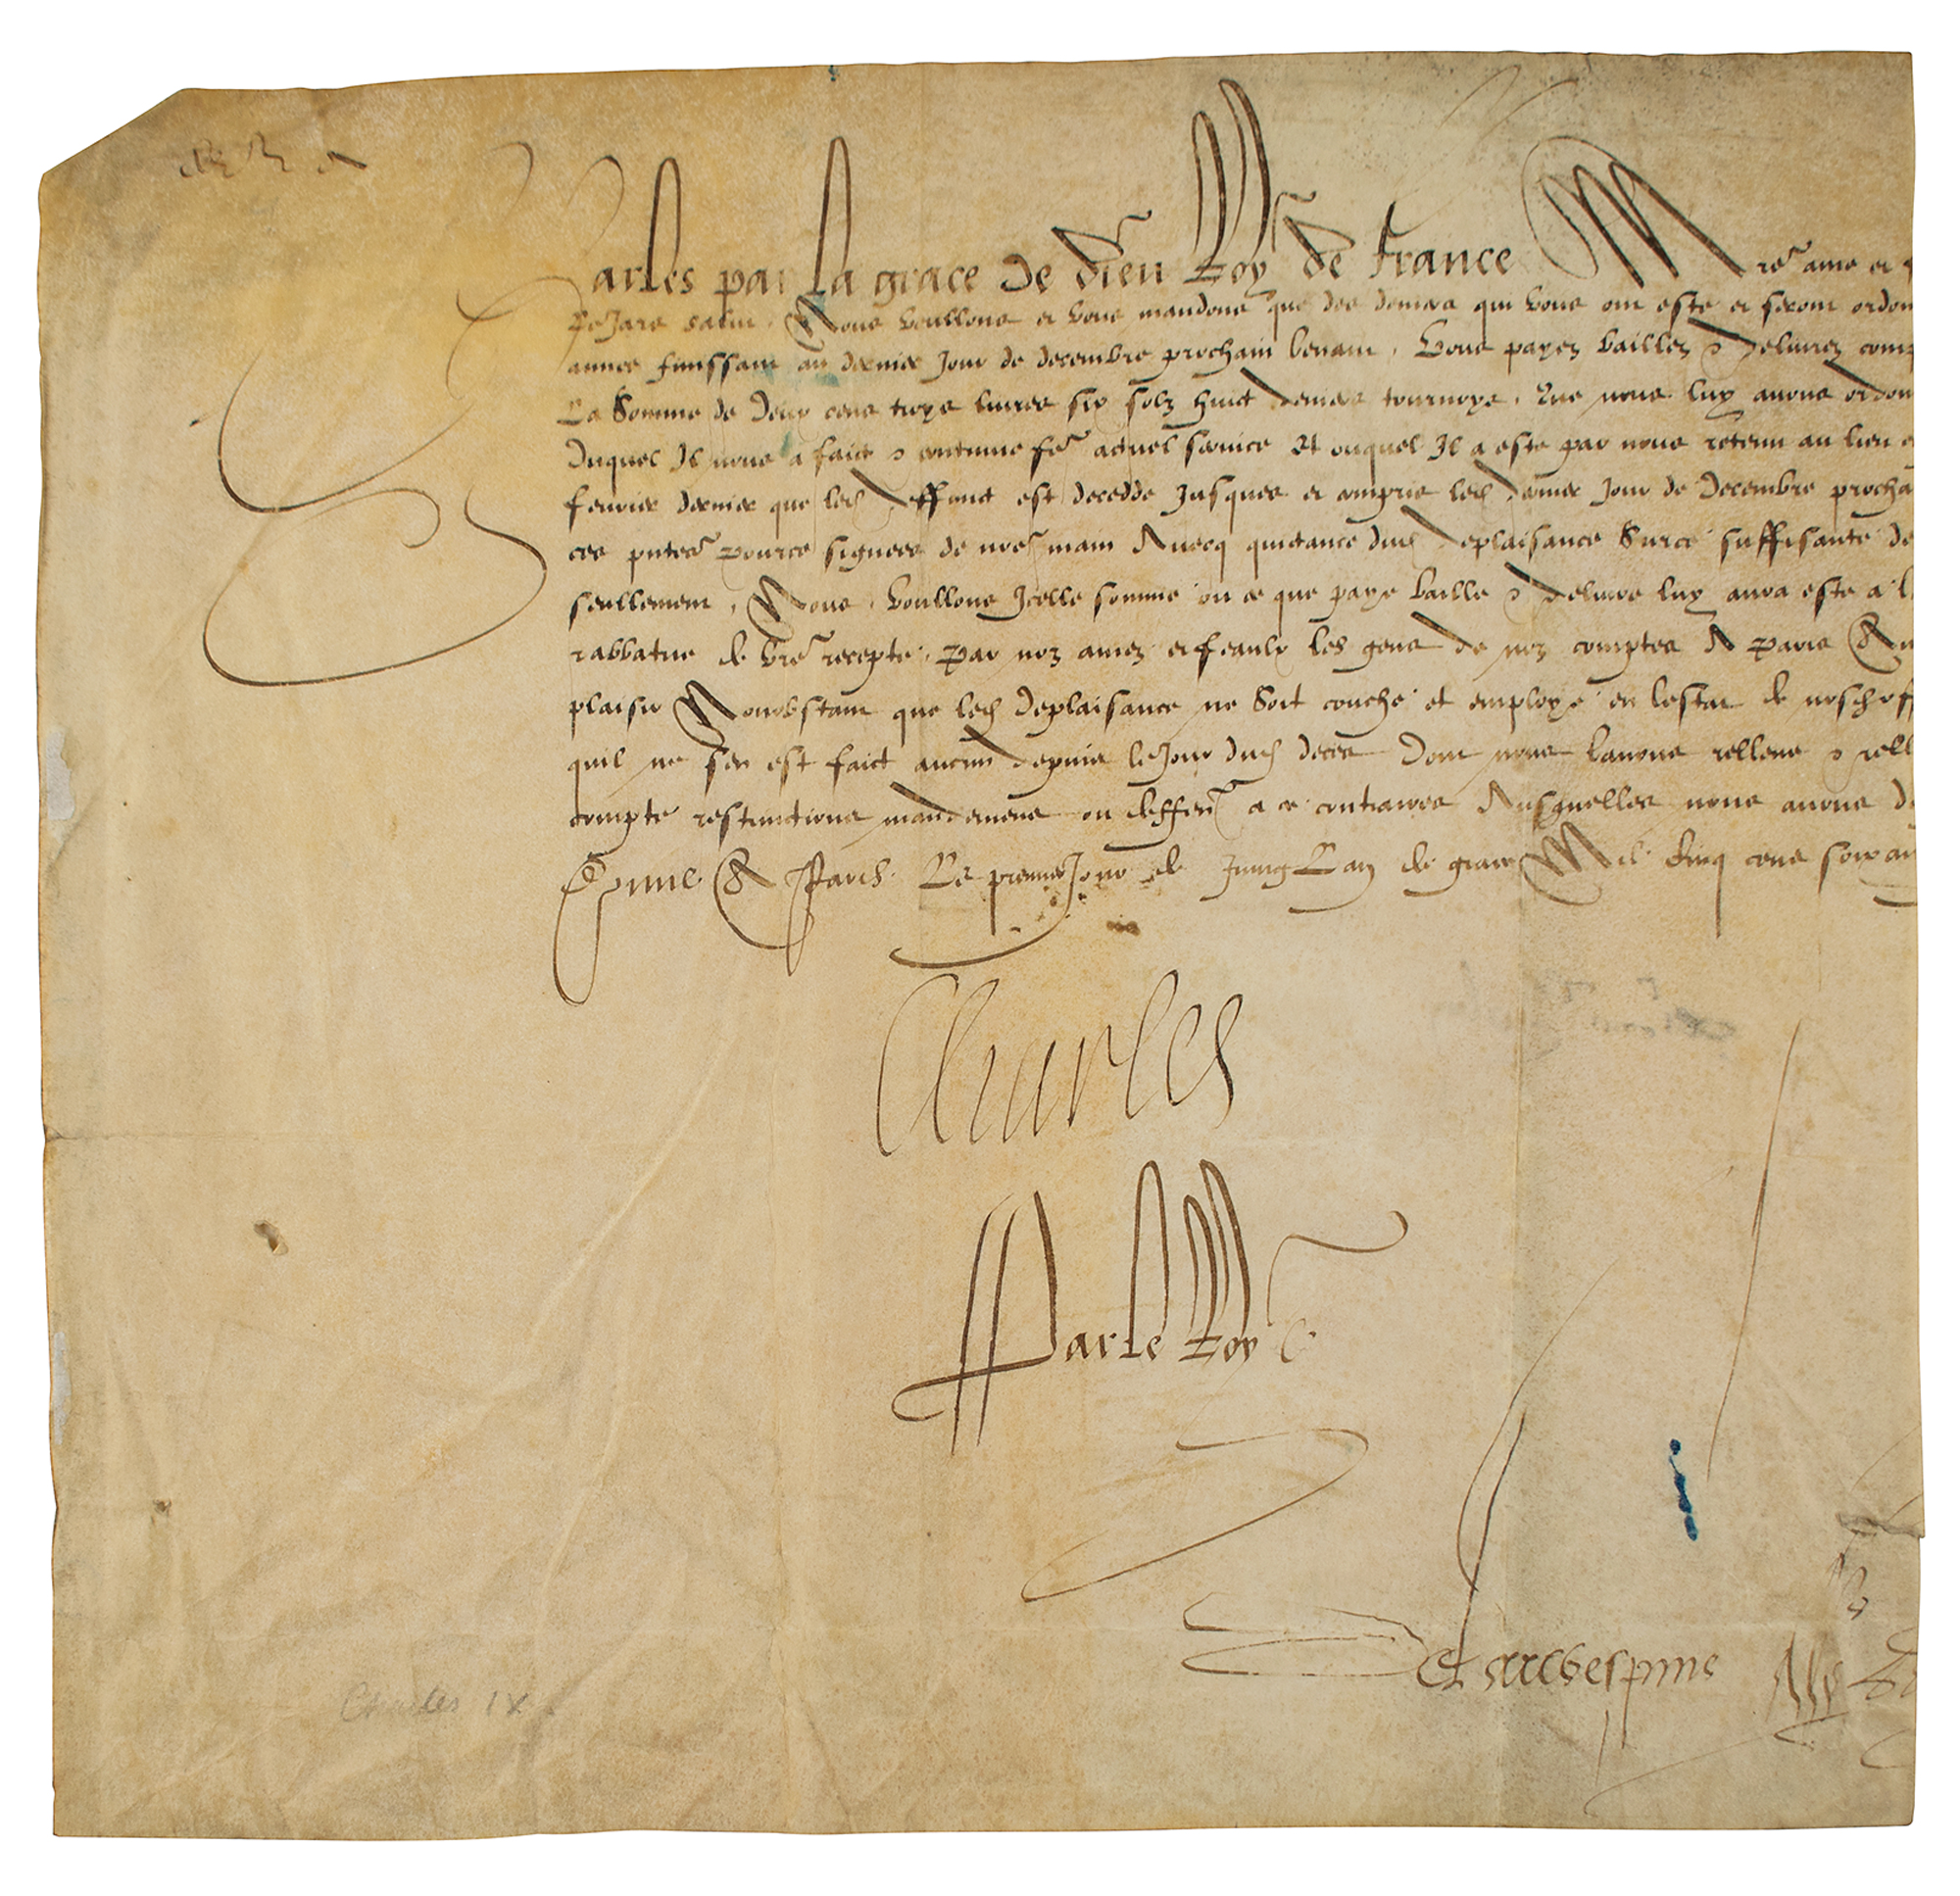 Charles par la grace de dieu Roy de france A nre ame et
salut. Nous voullons et vous mandons que des deniers qui vous ont este et seront ordon
annee finissant au dernier jour de decembre prochain venant. Vous payez baillez & delivrez comp
La somme de Deux cens troys livres six solz huict deniers tournoys. Que nous luy avons ordon
Duquel Il nous a faict & continue fe actuel service Et ouquel Il a este par nous retenu au lieu
fevrier dernier que led deffunct est decedde Jusques et compris led dernier jour de Decembre procha
ces pntes pource signees de nre main Avecq quictance dud deplaisance Surce suffisante de
seullement, Nous voullons Icelle somme ou ce que paye baille & delivre luy aura este a l
rabbatue de vre recepte, par noz amez et feaulx les gens de noz comptes A paris
plaisir Nonobstant que led Deplaisance ne soit couche et employe en lestat de nosd off
quil ne sen est faict aucun depuis le jour dud deces Dont nous lavons relleve & rell
compte restrinctions mandemens ou deffen a ce contraires Ausquelles nous avons d
Donne A Paris Le premier jour de Juing Lan de grace Mil cinq cens soixan
Charles
Par le Roy
Delaubespine
Charles IX